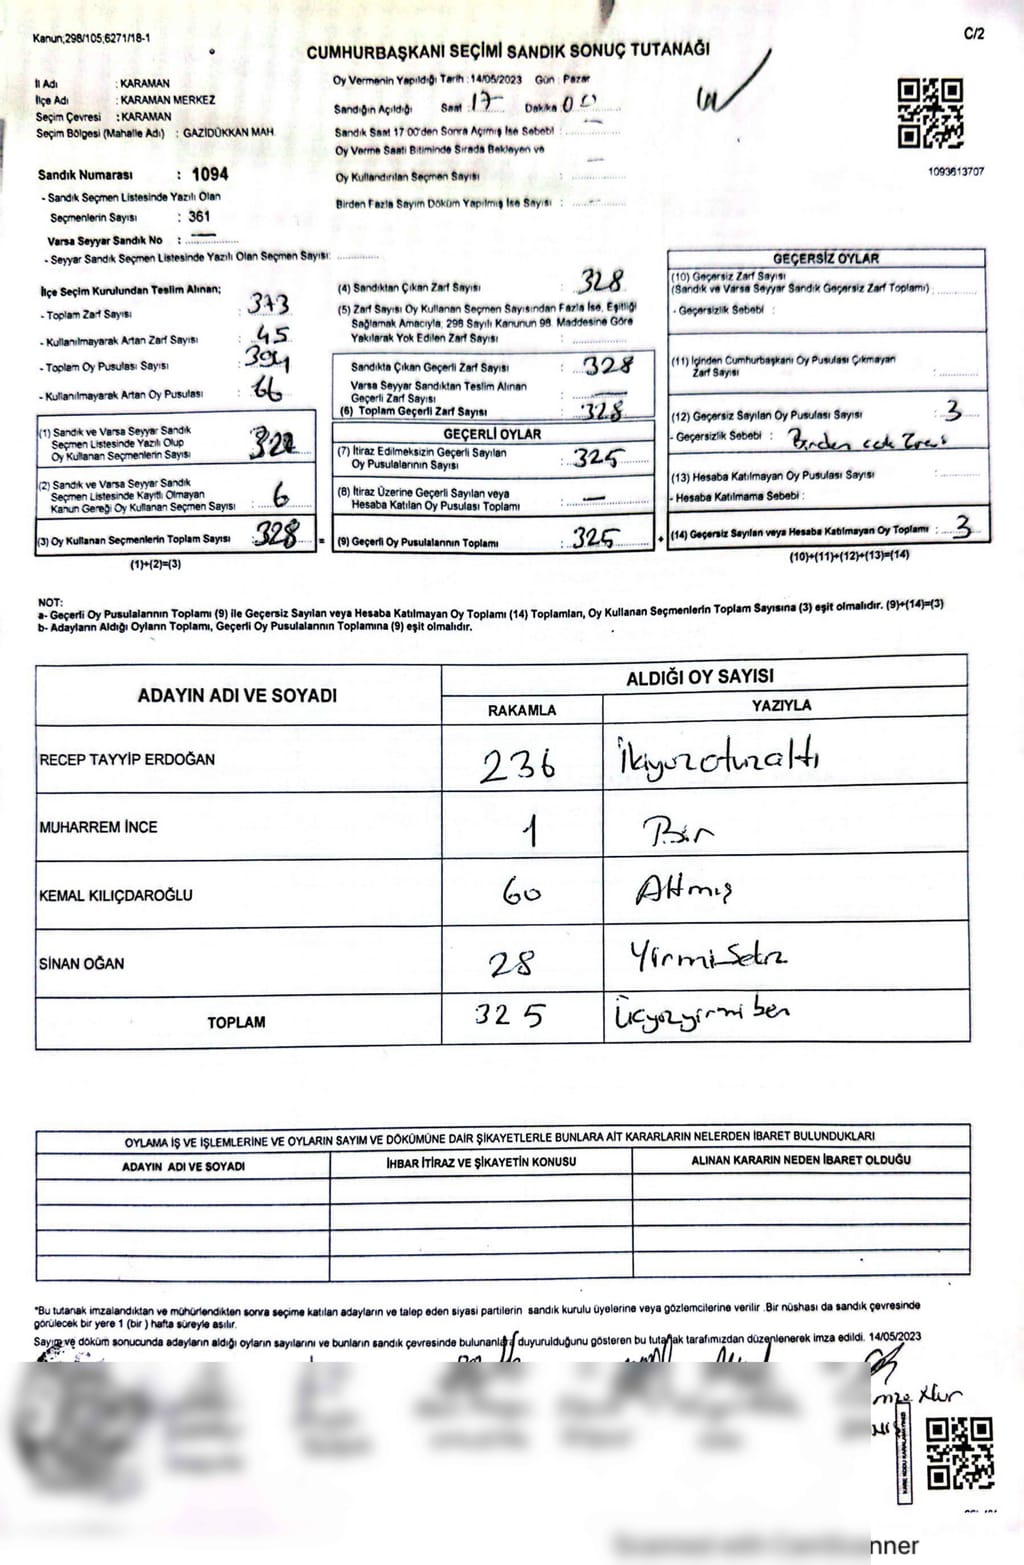 Kanun,298/105,6271/18-1
C/2
CUMHURBAŞKANI SEÇİMİ SANDIK SONUÇ TUTANAĞI
İl Adı : KARAMAN
İlçe Adı : KARAMAN MERKEZ
Seçim Çevresi : KARAMAN
Seçim Bölgesi (Mahalle Adı) : GAZİDÜKKAN MAH.
Oy Vermenin Yapıldığı Tarih :14/05/2023 Gün : Pazar
Sandığın Açıldığı Saat : 17 Dakika 00
Sandık Saat 17 00'den Sonra Açımış İse Sebebi :
Oy Verme Saati Bitiminde Sırada Bekleyen ve
Oy Kullandırılan Seçmen Sayısı :
Birden Fazla Sayım Döküm Yapılmış İse Sayısı :
1093613707
Sandık Numarası : 1094
- Sandık Seçmen Listesinde Yazılı Olan
Seçmenlerin Sayısı : 361
Varsa Seyyar Sandık No :
- Seyyar Sandık Seçmen Listesinde Yazılı Olan Seçmen Sayısı:
İlçe Seçim Kurulundan Teslim Alınan;
- Toplam Zarf Sayısı : 373
- Kullanılmayarak Artan Zarf Sayısı : 45
- Toplam Oy Pusulası Sayısı : 394
- Kullanılmayarak Artan Oy Pusulası : 66
(1) Sandık ve Varsa Seyyar Sandık
Seçmen Listesinde Yazılı Olup
Oy Kullanan Seçmenlerin Sayısı 322
(2) Sandık ve Varsa Seyyar Sandık
Seçmen Listesinde Kayıtlı Olmayan
Kanun Gereği Oy Kullanan Seçmen Sayısı : 6
(3) Oy Kullanan Seçmenlerin Toplam Sayısı : 328 =
(1)+(2)=(3)
(4) Sandıktan Çıkan Zarf Sayısı : 328
(5) Zarf Sayısı Oy Kullanan Seçmen Sayısından Fazla İse, Eşitliği
Sağlamak Amacıyla, 298 Sayılı Kanunun 98. Maddesine Göre
Yakılarak Yok Edilen Zarf Sayısı :
Sandıkta Çıkan Geçerli Zarf Sayısı : 328
Varsa Seyyar Sandıktan Teslim Alınan
Geçerli Zarf Sayısı :
(6) Toplam Geçerli Zarf Sayısı : 328
GEÇERLİ OYLAR
(7) İtiraz Edilmeksizin Geçerli Sayılan
Oy Pusulalarının Sayısı : 325
(8) İtiraz Üzerine Geçerli Sayılan veya
Hesaba Katılan Oy Pusulası Toplamı : —
(9) Geçerli Oy Pusulalarının Toplamı : 325 +
GEÇERSİZ OYLAR
(10) Geçersiz Zarf Sayısı
(Sandık ve Varsa Seyyar Sandık Geçersiz Zarf Toplamı) :
- Geçersizlik Sebebi :
(11) İçinden Cumhurbaşkanı Oy Pusulası Çıkmayan
Zarf Sayısı :
(12) Geçersiz Sayılan Oy Pusulası Sayısı : 3
- Geçersizlik Sebebi : Birden cok
(13) Hesaba Katılmayan Oy Pusulası Sayısı :
- Hesaba Katılmama Sebebi :
(14) Geçersiz Sayılan veya Hesaba Katılmayan Oy Toplamı : 3
(10)+(11)+(12)+(13)=(14)
NOT:
a- Geçerli Oy Pusulalarının Toplamı (9) ile Geçersiz Sayılan veya Hesaba Katılmayan Oy Toplamı (14) Toplamları, Oy Kullanan Seçmenlerin Toplam Sayısına (3) eşit olmalıdır. (9)+(14)=(3)
b- Adayların Aldığı Oyların Toplamı, Geçerli Oy Pusulalarının Toplamına (9) eşit olmalıdır.
ADAYIN ADI VE SOYADI
ALDIĞI OY SAYISI
RAKAMLA YAZIYLA
RECEP TAYYİP ERDOĞAN 236 İkiyüzotuzaltı
MUHARREM İNCE 1 Bir
KEMAL KILIÇDAROĞLU 60 Altmış
SİNAN OĞAN 28 YirmiSekiz
TOPLAM 325 Üçyüzyirmi beş
OYLAMA İŞ VE İŞLEMLERİNE VE OYLARIN SAYIM VE DÖKÜMÜNE DAİR ŞİKAYETLERLE BUNLARA AİT KARARLARIN NELERDEN İBARET BULUNDUKLARI
ADAYIN ADI VE SOYADI İHBAR İTİRAZ VE ŞİKAYETİN KONUSU ALINAN KARARIN NEDEN İBARET OLDUĞU
*Bu tutanak imzalandıktan ve mühürlendikten sonra seçime katılan adayların ve talep eden siyasi partilerin sandık kurulu üyelerine veya gözlemcilerine verilir .Bir nüshası da sandık çevresinde
görülecek bir yere 1 (bir ) hafta süreyle asılır.
Sayım ve döküm sonucunda adayların aldığı oyların sayılarını ve bunların sandık çevresinde bulunanlara duyurulduğunu gösteren bu tutanak tarafımızdan düzenlenerek imza edildi. 14/05/2023